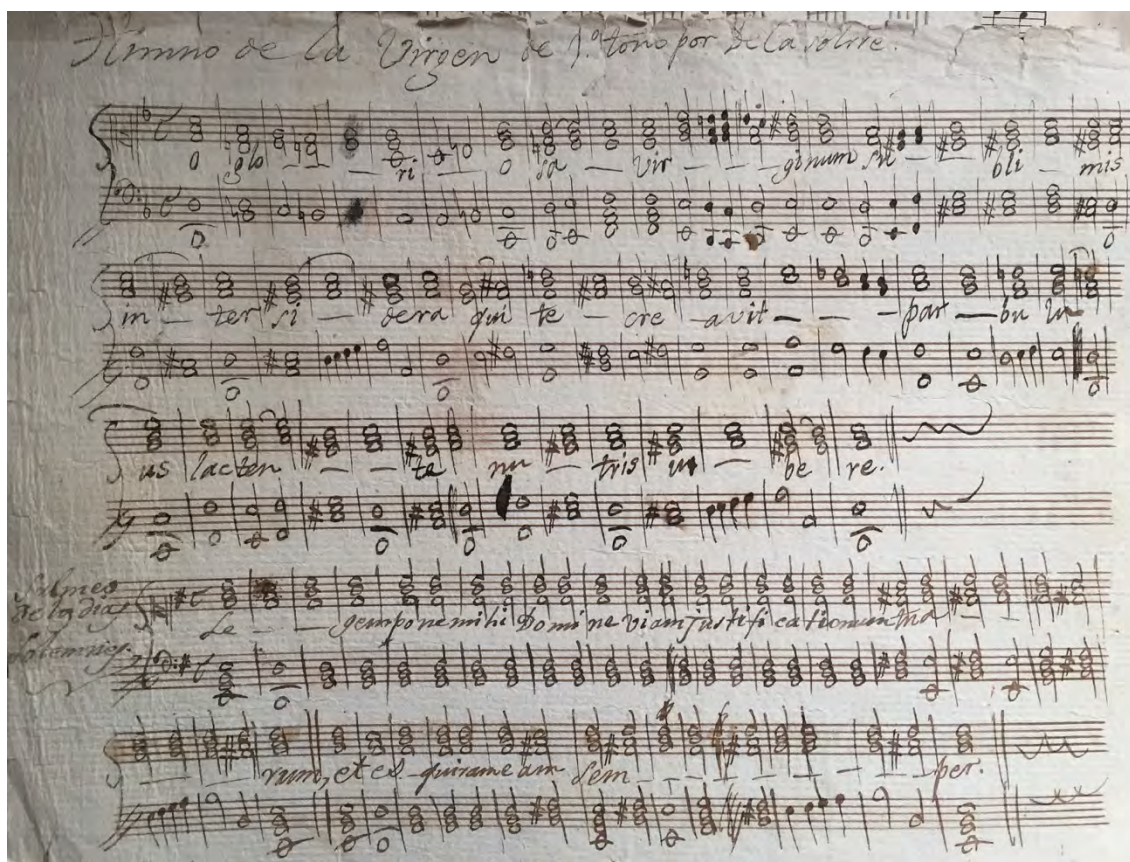 Himno de la Virgen de 1.º tono por Delasolrre.
O glo — — ri — — o sa — vir — — — ginum su — — bli — mis
in — ter si — dera qui te — cre — avit — — — par — bu lu —
us lacten — — te nu — tris u — be re.
Salmos
de los dias
solemnes.
Le — — — gem pone mihi Domine viam justificationum tua — — — —
— — — — rum, et ex — quiram eam sem — — — — — — per.